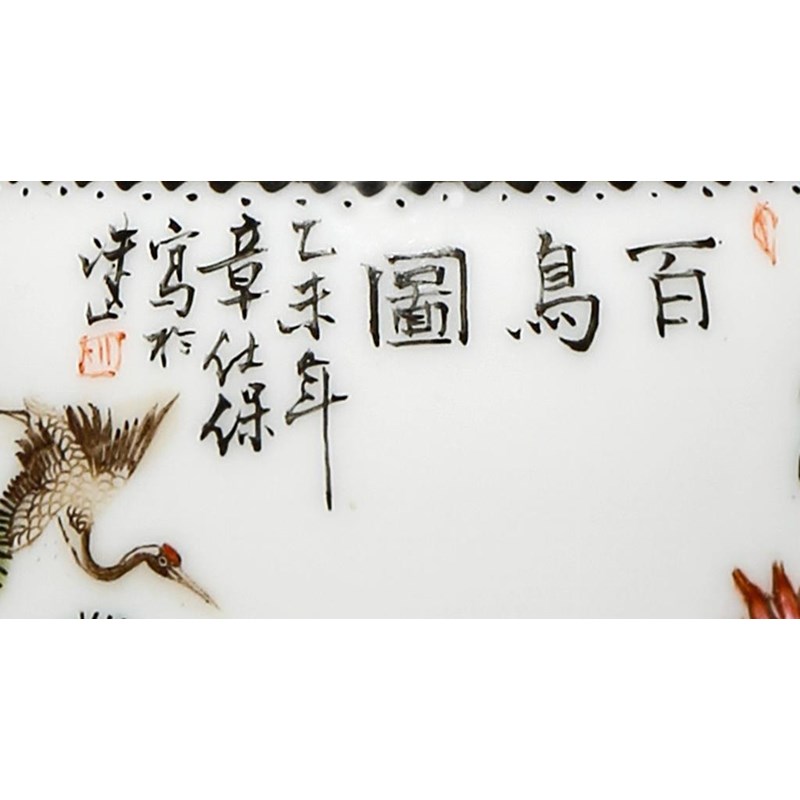 百鳥圖
乙未年
章仕保
寫於
珠山